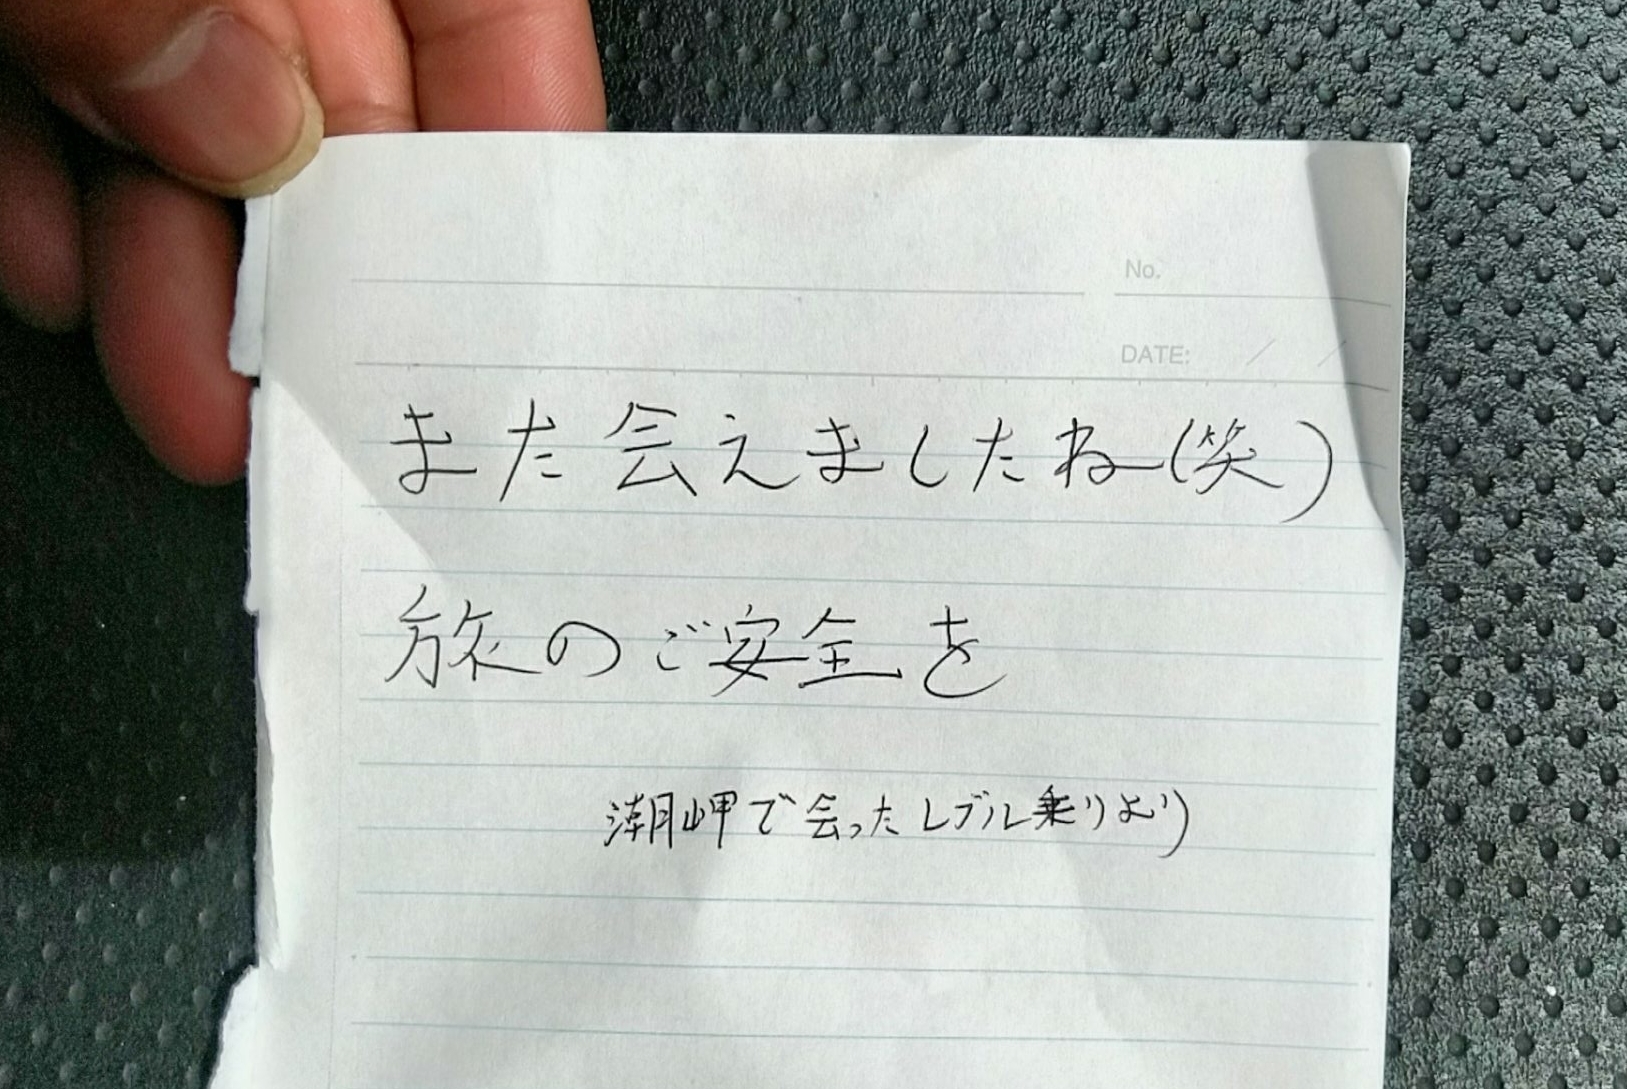 No.
DATE: / /
また会えましたね(笑)
旅のご安全を
潮岬で会ったレブル乗りより